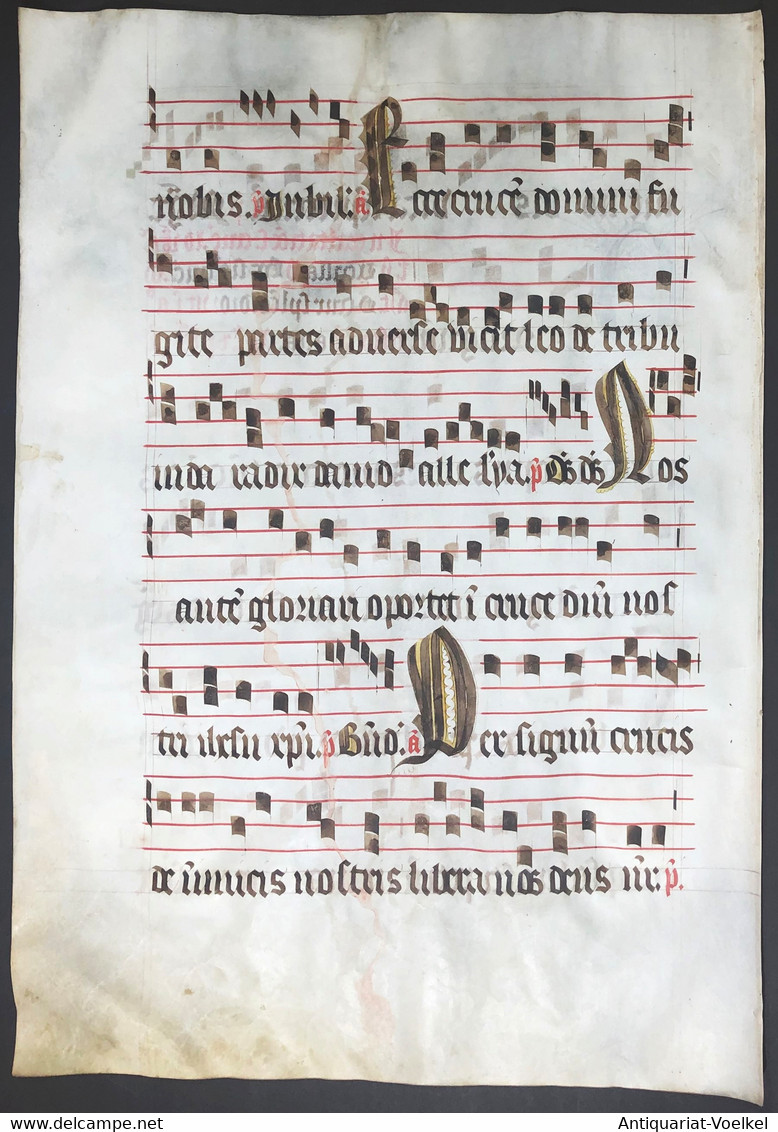 nobis. p̄ Jubil̄: ā Ecce crucē domini fu
gite partes aduerse vicit leo de tribu
iuda radix dauid alle luya. p̄ Ds̄ ds̄ Nos
autē gloriari oportet ī cruce dn̄i nos
tri ihesu xp̄i. p̄ Bn̄d: ā Per signū crucis
de īnimicis nostris libera nos deus nr̄: p̄.
Antiquariat-Voelkel